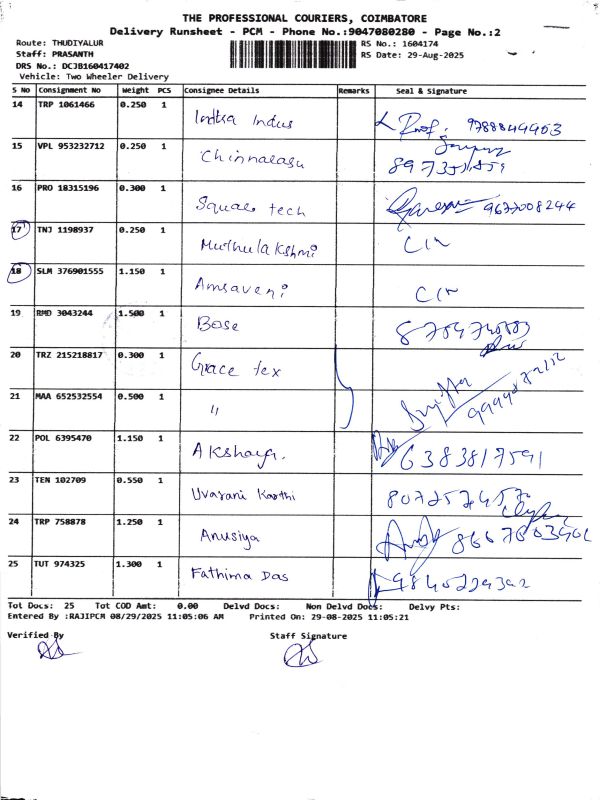 THE PROFESSIONAL COURIERS, COIMBATORE
Delivery Runsheet - PCM - Phone No.:9047080280 - Page No.:2
Route: THUDIYALUR
Staff: PRASANTH
DRS No.: DCJB160417402
Vehicle: Two Wheeler Delivery
RS No.: 1604174
RS Date: 29-Aug-2025
S No Consignment No Weight PCS Consignee Details Remarks Seal & Signature
14 TRP 1061466 0.250 1 Indus
15 VPL 953232712 0.250 1 Chinnarasu
16 PRO 18315196 0.300 1 Square tech 9677008244
17 TNJ 1198937 0.250 1 Muthulakshmi
18 SLM 376901555 1.150 1 Amsaveni
19 RMD 3043244 1.500 1 Bose
20 TRZ 215218817 0.300 1 Grace tex
21 MAA 652532554 0.500 1 "
22 POL 6395470 1.150 1 Akshaya. 6383817591
23 TEN 102709 0.550 1 Uvarani Karthi
24 TRP 758878 1.250 1 Anusiya
25 TUT 974325 1.300 1 Fathima Das
Tot Docs: 25 Tot COD Amt: 0.00 Delvd Docs: Non Delvd Docs: Delvy Pts:
Entered By :RAJIPCM 08/29/2025 11:05:06 AM Printed On: 29-08-2025 11:05:21
Verified By Staff Signature